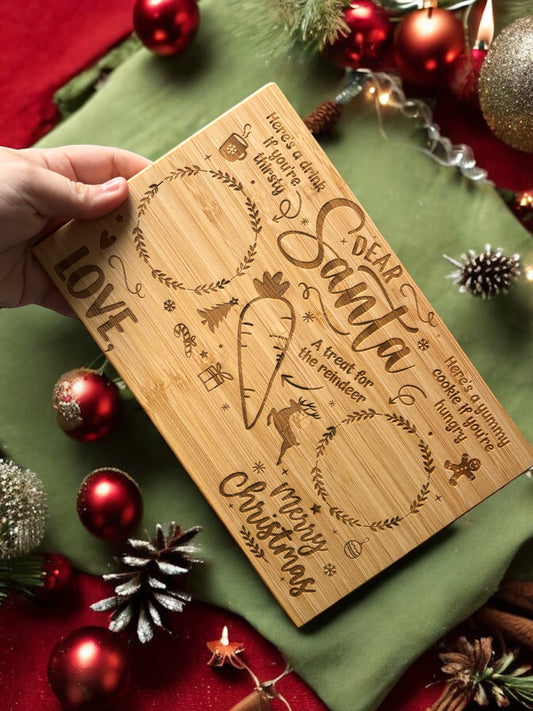 DEAR
Santa
Here's a drink
if you're
thirsty
Here's a yummy
cookie if you're
hungry
A treat for
the reindeer
Merry
Christmas
LOVE,